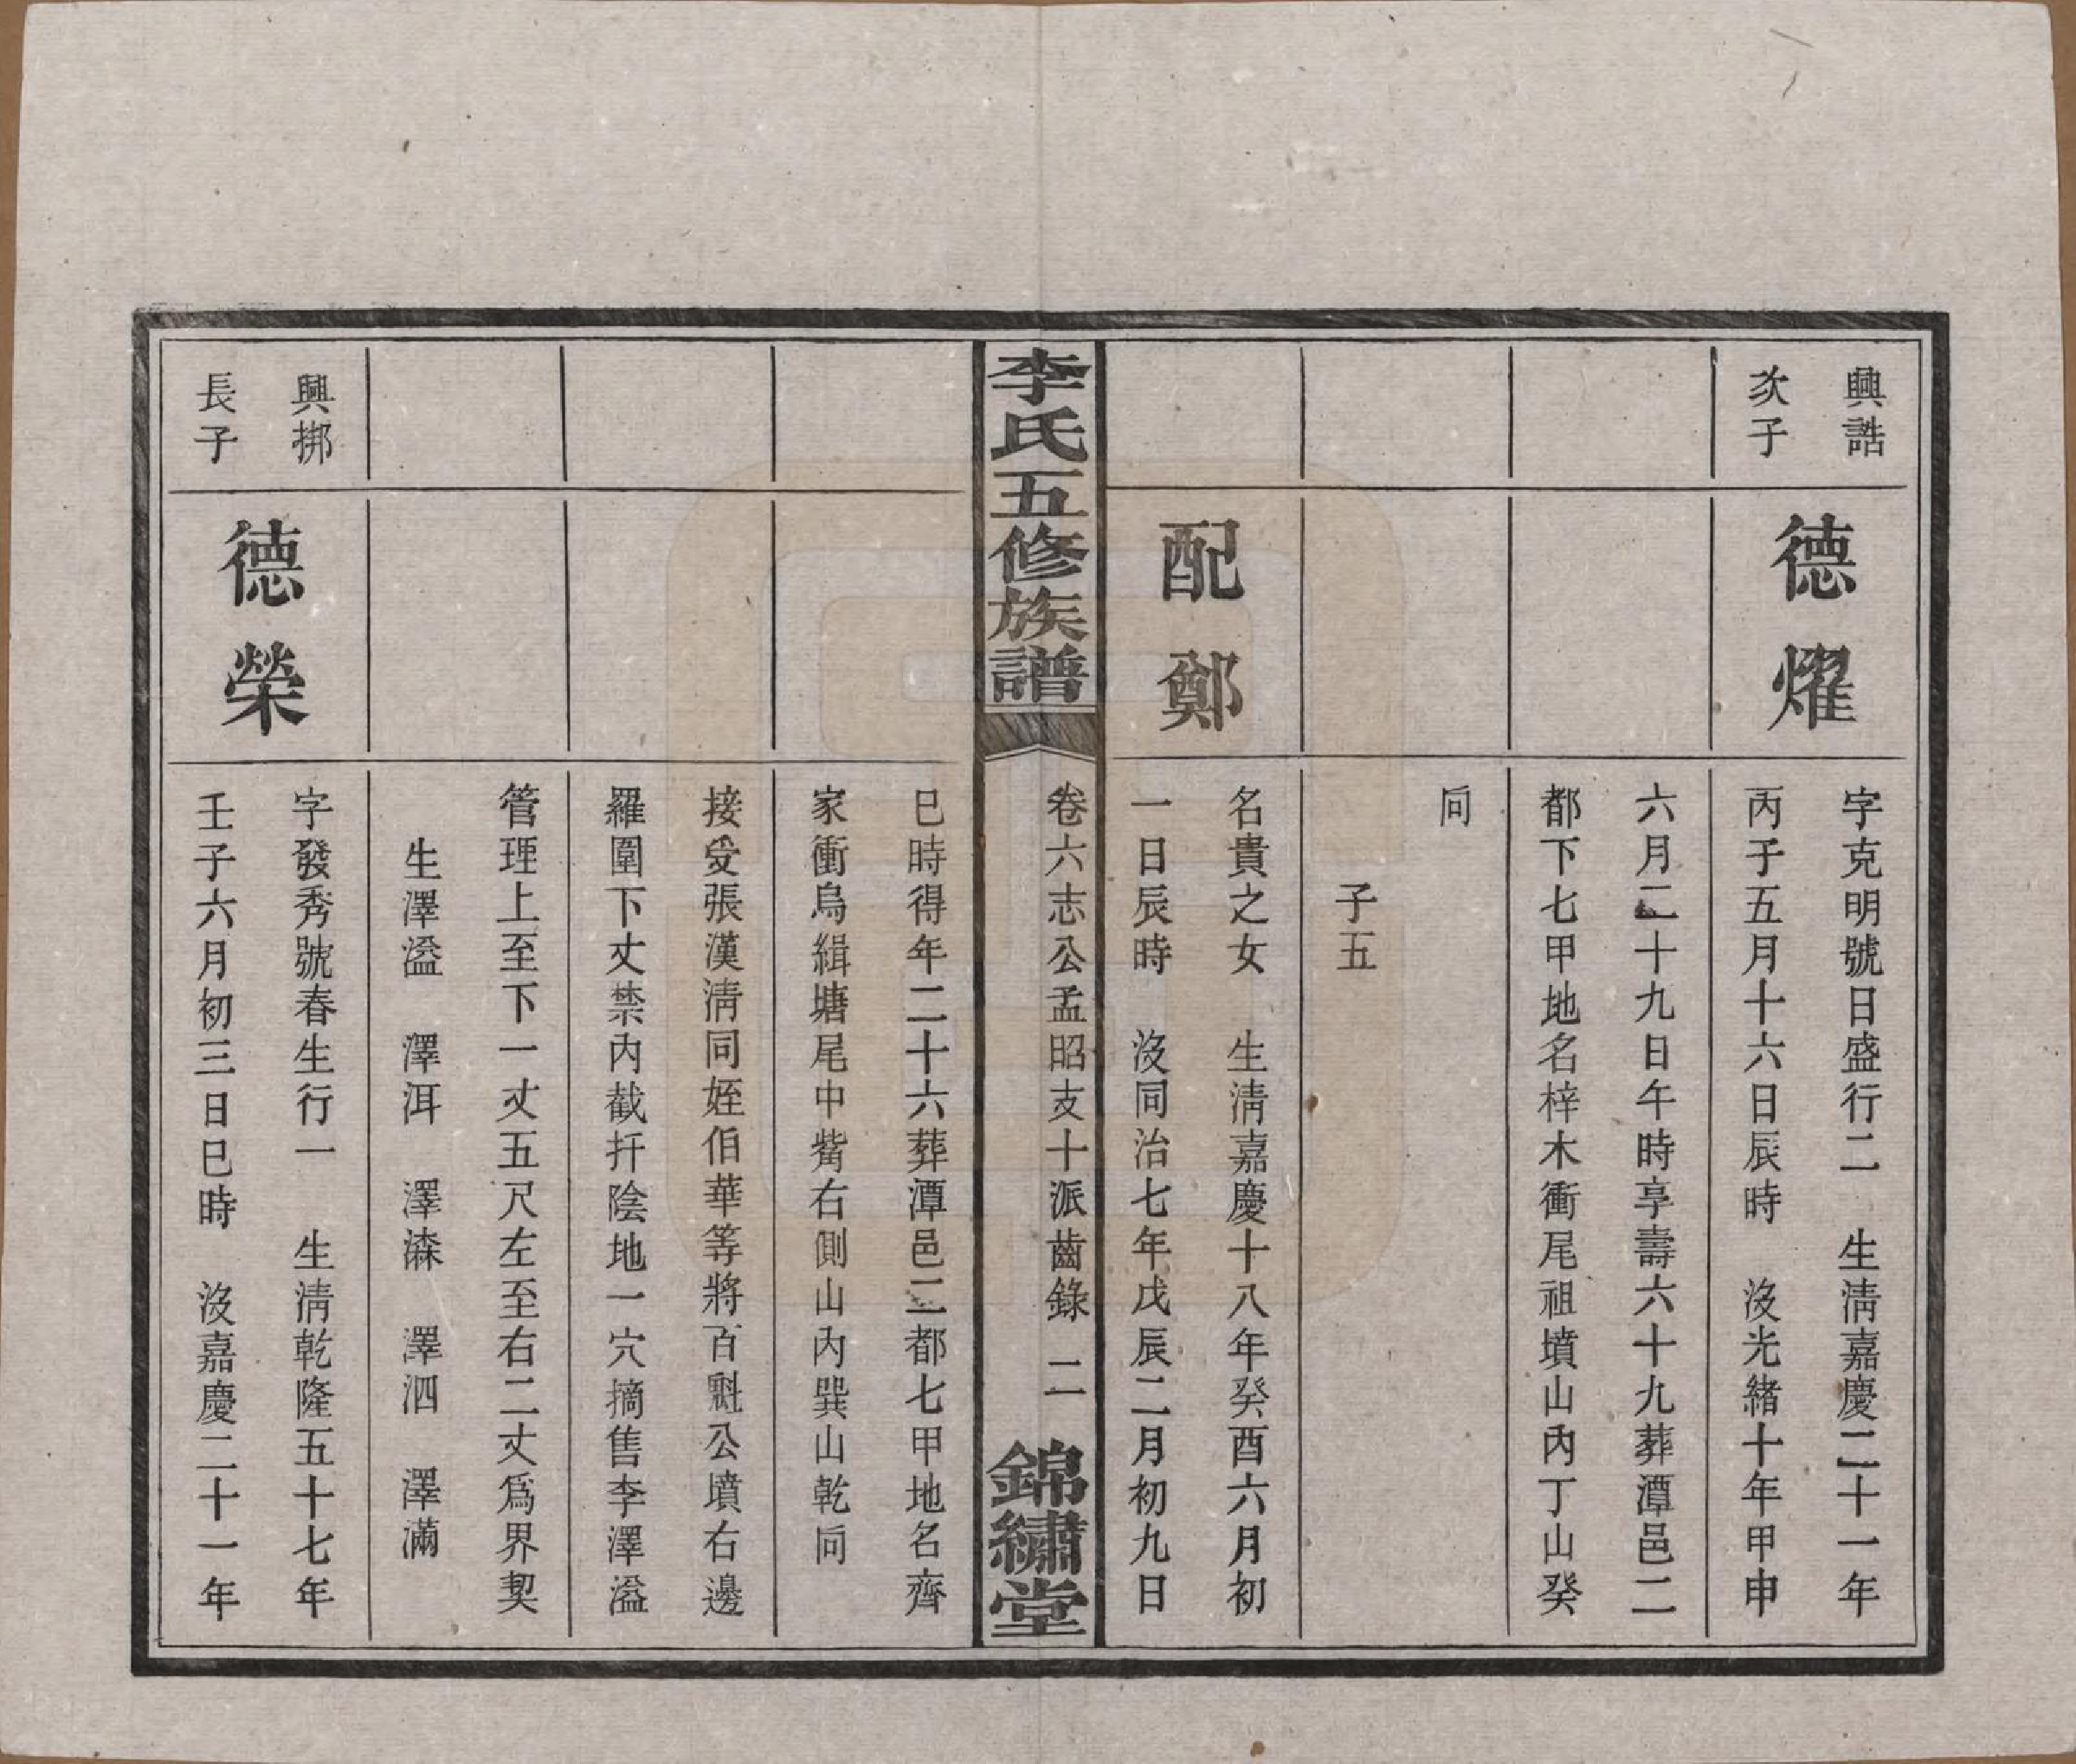 興誥
次子
德燿
字克明號日盛行二　生清嘉慶二十一年
丙子五月十六日辰時　沒光緒十年甲申
六月二十九日午時享壽六十九葬潭邑二
都下七甲地名梓木衝尾祖墳山內丁山癸
向
子五
配鄭
名貴之女　生清嘉慶十八年癸酉六月初
一日辰時　沒同治七年戊辰二月初九日
李氏五修族譜
卷六志公孟昭支十派齒錄　二
錦繡堂
巳時得年二十六葬潭邑二都七甲地名齊
家衝烏緝塘尾中觜右側山內巽山乾向
接受張漢清同姪伯華等將百魁公墳右邊
羅圍下丈禁內截扦陰地一穴摘售李澤溢
管理上至下一丈五尺左至右二丈爲界契
生澤溢　澤洱　澤潹　澤泗　澤滿
興梆
長子
德榮
字發秀號春生行一　生清乾隆五十七年
壬子六月初三日巳時　沒嘉慶二十一年